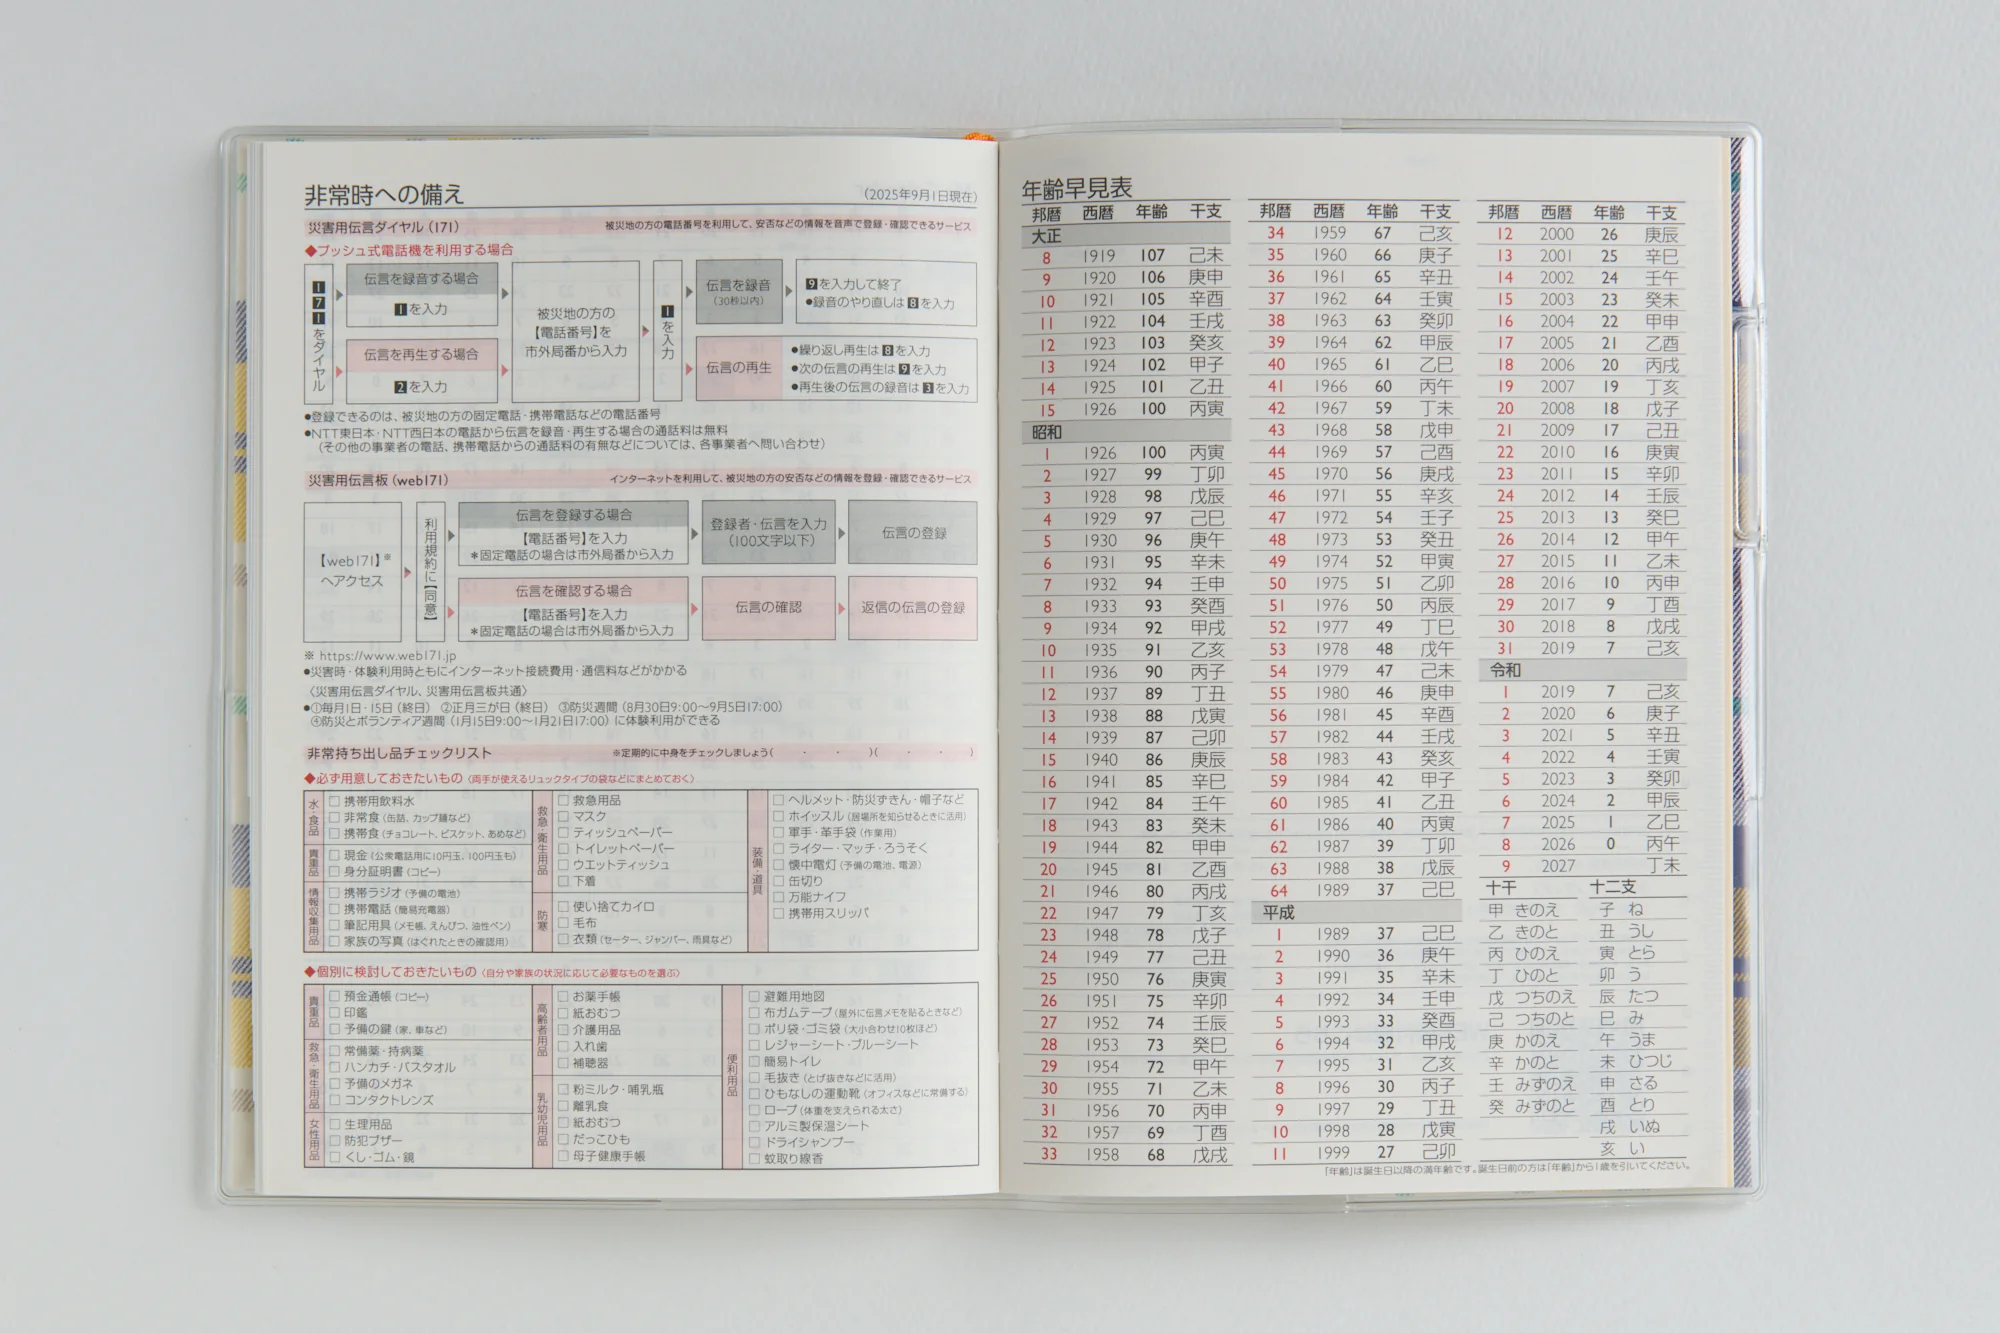 非常時への備え
(2025年9月1日現在)
災害用伝言ダイヤル(171)
被災地の方の電話番号を利用して、安否などの情報を音声で登録・確認できるサービス
◆プッシュ式電話機を利用する場合
171をダイヤル
伝言を録音する場合
1を入力
伝言を再生する場合
2を入力
被災地の方の
【電話番号】を
市外局番から入力
1を入力
伝言を録音
(30秒以内)
9を入力して終了
●録音のやり直しは8を入力
伝言の再生
●繰り返し再生は8を入力
●次の伝言の再生は9を入力
●再生後の伝言の録音は3を入力
●登録できるのは、被災地の方の固定電話・携帯電話などの電話番号
●NTT東日本・NTT西日本の電話から伝言を録音・再生する場合の通話料は無料
(その他の事業者の電話、携帯電話からの通話料の有無などについては、各事業者へ問い合わせ)
災害用伝言板(web171)
インターネットを利用して、被災地の方の安否などの情報を登録・確認できるサービス
【web171】※
へアクセス
利用規約に【同意】
伝言を登録する場合
【電話番号】を入力
*固定電話の場合は市外局番から入力
登録者・伝言を入力
(100文字以下)
伝言の登録
伝言を確認する場合
【電話番号】を入力
*固定電話の場合は市外局番から入力
伝言の確認
返信の伝言の登録
※ https://www.web171.jp
●災害時・体験利用時ともにインターネット接続費用・通信料などがかかる
〈災害用伝言ダイヤル、災害用伝言板共通〉
●①毎月1日・15日(終日) ②正月三が日(終日) ③防災週間(8月30日9:00～9月5日17:00)
④防災とボランティア週間(1月15日9:00～1月21日17:00)に体験利用ができる
非常持ち出し品チェックリスト
※定期的に中身をチェックしましょう( ・ ・ )( ・ ・ )
◆必ず用意しておきたいもの〈両手が使えるリュックタイプの袋などにまとめておく〉
水・食品
□ 携帯用飲料水
□ 非常食(缶詰、カップ麺など)
□ 携帯食(チョコレート、ビスケット、あめなど)
貴重品
□ 現金(公衆電話用に10円玉、100円玉も)
□ 身分証明書(コピー)
情報収集用品
□ 携帯ラジオ(予備の電池)
□ 携帯電話(簡易充電器)
□ 筆記用具(メモ帳、えんぴつ、油性ペン)
□ 家族の写真(はぐれたときの確認用)
救急・衛生用品
□ 救急用品
□ マスク
□ ティッシュペーパー
□ トイレットペーパー
□ ウエットティッシュ
□ 下着
防寒
□ 使い捨てカイロ
□ 毛布
□ 衣類(セーター、ジャンパー、雨具など)
装備・道具
□ ヘルメット・防災ずきん・帽子など
□ ホイッスル(居場所を知らせるときに活用)
□ 軍手・革手袋(作業用)
□ ライター・マッチ・ろうそく
□ 懐中電灯(予備の電池、電源)
□ 缶切り
□ 万能ナイフ
□ 携帯用スリッパ
◆個別に検討しておきたいもの〈自分や家族の状況に応じて必要なものを選ぶ〉
貴重品
□ 預金通帳(コピー)
□ 印鑑
□ 予備の鍵(家、車など)
救急・衛生用品
□ 常備薬・持病薬
□ ハンカチ・バスタオル
□ 予備のメガネ
□ コンタクトレンズ
女性用品
□ 生理用品
□ 防犯ブザー
□ くし・ゴム・鏡
高齢者用品
□ お薬手帳
□ 紙おむつ
□ 介護用品
□ 入れ歯
□ 補聴器
乳幼児用品
□ 粉ミルク・哺乳瓶
□ 離乳食
□ 紙おむつ
□ だっこひも
□ 母子健康手帳
便利用品
□ 避難用地図
□ 布ガムテープ(屋外に伝言メモを貼るときなど)
□ ポリ袋・ゴミ袋(大小合わせ10枚ほど)
□ レジャーシート・ブルーシート
□ 簡易トイレ
□ 毛抜き(とげ抜きなどに活用)
□ ひもなしの運動靴(オフィスなどに常備する)
□ ロープ(体重を支えられる太さ)
□ アルミ製保温シート
□ ドライシャンプー
□ 蚊取り線香
年齢早見表
邦暦 西暦 年齢 干支
大正
8 1919 107 己未
9 1920 106 庚申
10 1921 105 辛酉
11 1922 104 壬戌
12 1923 103 癸亥
13 1924 102 甲子
14 1925 101 乙丑
15 1926 100 丙寅
昭和
1 1926 100 丙寅
2 1927 99 丁卯
3 1928 98 戊辰
4 1929 97 己巳
5 1930 96 庚午
6 1931 95 辛未
7 1932 94 壬申
8 1933 93 癸酉
9 1934 92 甲戌
10 1935 91 乙亥
11 1936 90 丙子
12 1937 89 丁丑
13 1938 88 戊寅
14 1939 87 己卯
15 1940 86 庚辰
16 1941 85 辛巳
17 1942 84 壬午
18 1943 83 癸未
19 1944 82 甲申
20 1945 81 乙酉
21 1946 80 丙戌
22 1947 79 丁亥
23 1948 78 戊子
24 1949 77 己丑
25 1950 76 庚寅
26 1951 75 辛卯
27 1952 74 壬辰
28 1953 73 癸巳
29 1954 72 甲午
30 1955 71 乙未
31 1956 70 丙申
32 1957 69 丁酉
33 1958 68 戊戌
邦暦 西暦 年齢 干支
34 1959 67 己亥
35 1960 66 庚子
36 1961 65 辛丑
37 1962 64 壬寅
38 1963 63 癸卯
39 1964 62 甲辰
40 1965 61 乙巳
41 1966 60 丙午
42 1967 59 丁未
43 1968 58 戊申
44 1969 57 己酉
45 1970 56 庚戌
46 1971 55 辛亥
47 1972 54 壬子
48 1973 53 癸丑
49 1974 52 甲寅
50 1975 51 乙卯
51 1976 50 丙辰
52 1977 49 丁巳
53 1978 48 戊午
54 1979 47 己未
55 1980 46 庚申
56 1981 45 辛酉
57 1982 44 壬戌
58 1983 43 癸亥
59 1984 42 甲子
60 1985 41 乙丑
61 1986 40 丙寅
62 1987 39 丁卯
63 1988 38 戊辰
64 1989 37 己巳
平成
1 1989 37 己巳
2 1990 36 庚午
3 1991 35 辛未
4 1992 34 壬申
5 1993 33 癸酉
6 1994 32 甲戌
7 1995 31 乙亥
8 1996 30 丙子
9 1997 29 丁丑
10 1998 28 戊寅
11 1999 27 己卯
邦暦 西暦 年齢 干支
12 2000 26 庚辰
13 2001 25 辛巳
14 2002 24 壬午
15 2003 23 癸未
16 2004 22 甲申
17 2005 21 乙酉
18 2006 20 丙戌
19 2007 19 丁亥
20 2008 18 戊子
21 2009 17 己丑
22 2010 16 庚寅
23 2011 15 辛卯
24 2012 14 壬辰
25 2013 13 癸巳
26 2014 12 甲午
27 2015 11 乙未
28 2016 10 丙申
29 2017 9 丁酉
30 2018 8 戊戌
31 2019 7 己亥
令和
1 2019 7 己亥
2 2020 6 庚子
3 2021 5 辛丑
4 2022 4 壬寅
5 2023 3 癸卯
6 2024 2 甲辰
7 2025 1 乙巳
8 2026 0 丙午
9 2027 丁未
十干 十二支
甲 きのえ 子 ね
乙 きのと 丑 うし
丙 ひのえ 寅 とら
丁 ひのと 卯 う
戊 つちのえ 辰 たつ
己 つちのと 巳 み
庚 かのえ 午 うま
辛 かのと 未 ひつじ
壬 みずのえ 申 さる
癸 みずのと 酉 とり
戌 いぬ
亥 い
「年齢」は誕生日以降の満年齢です。誕生日前の方は「年齢」から1歳を引いてください。